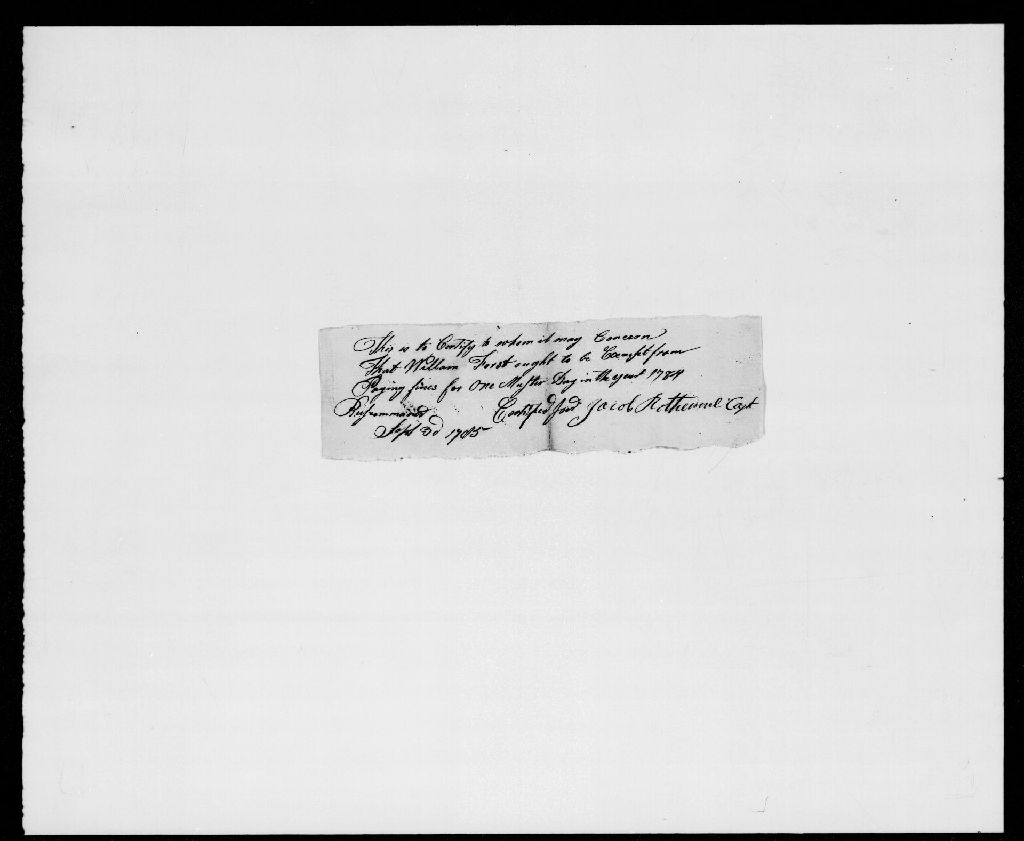 This is to Certify to whom it may Concern
That William Forst ought to be Exempt from
Paying fines for One Muster Day in the year 1784
Certified Jacob Rothermel Capt
Sept 3d 1785